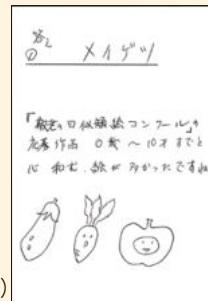 メイゲツ
「敬老の日似顔絵コンクール」の
応募作品 0歳〜10才までと
心和む、絵が多かったですね